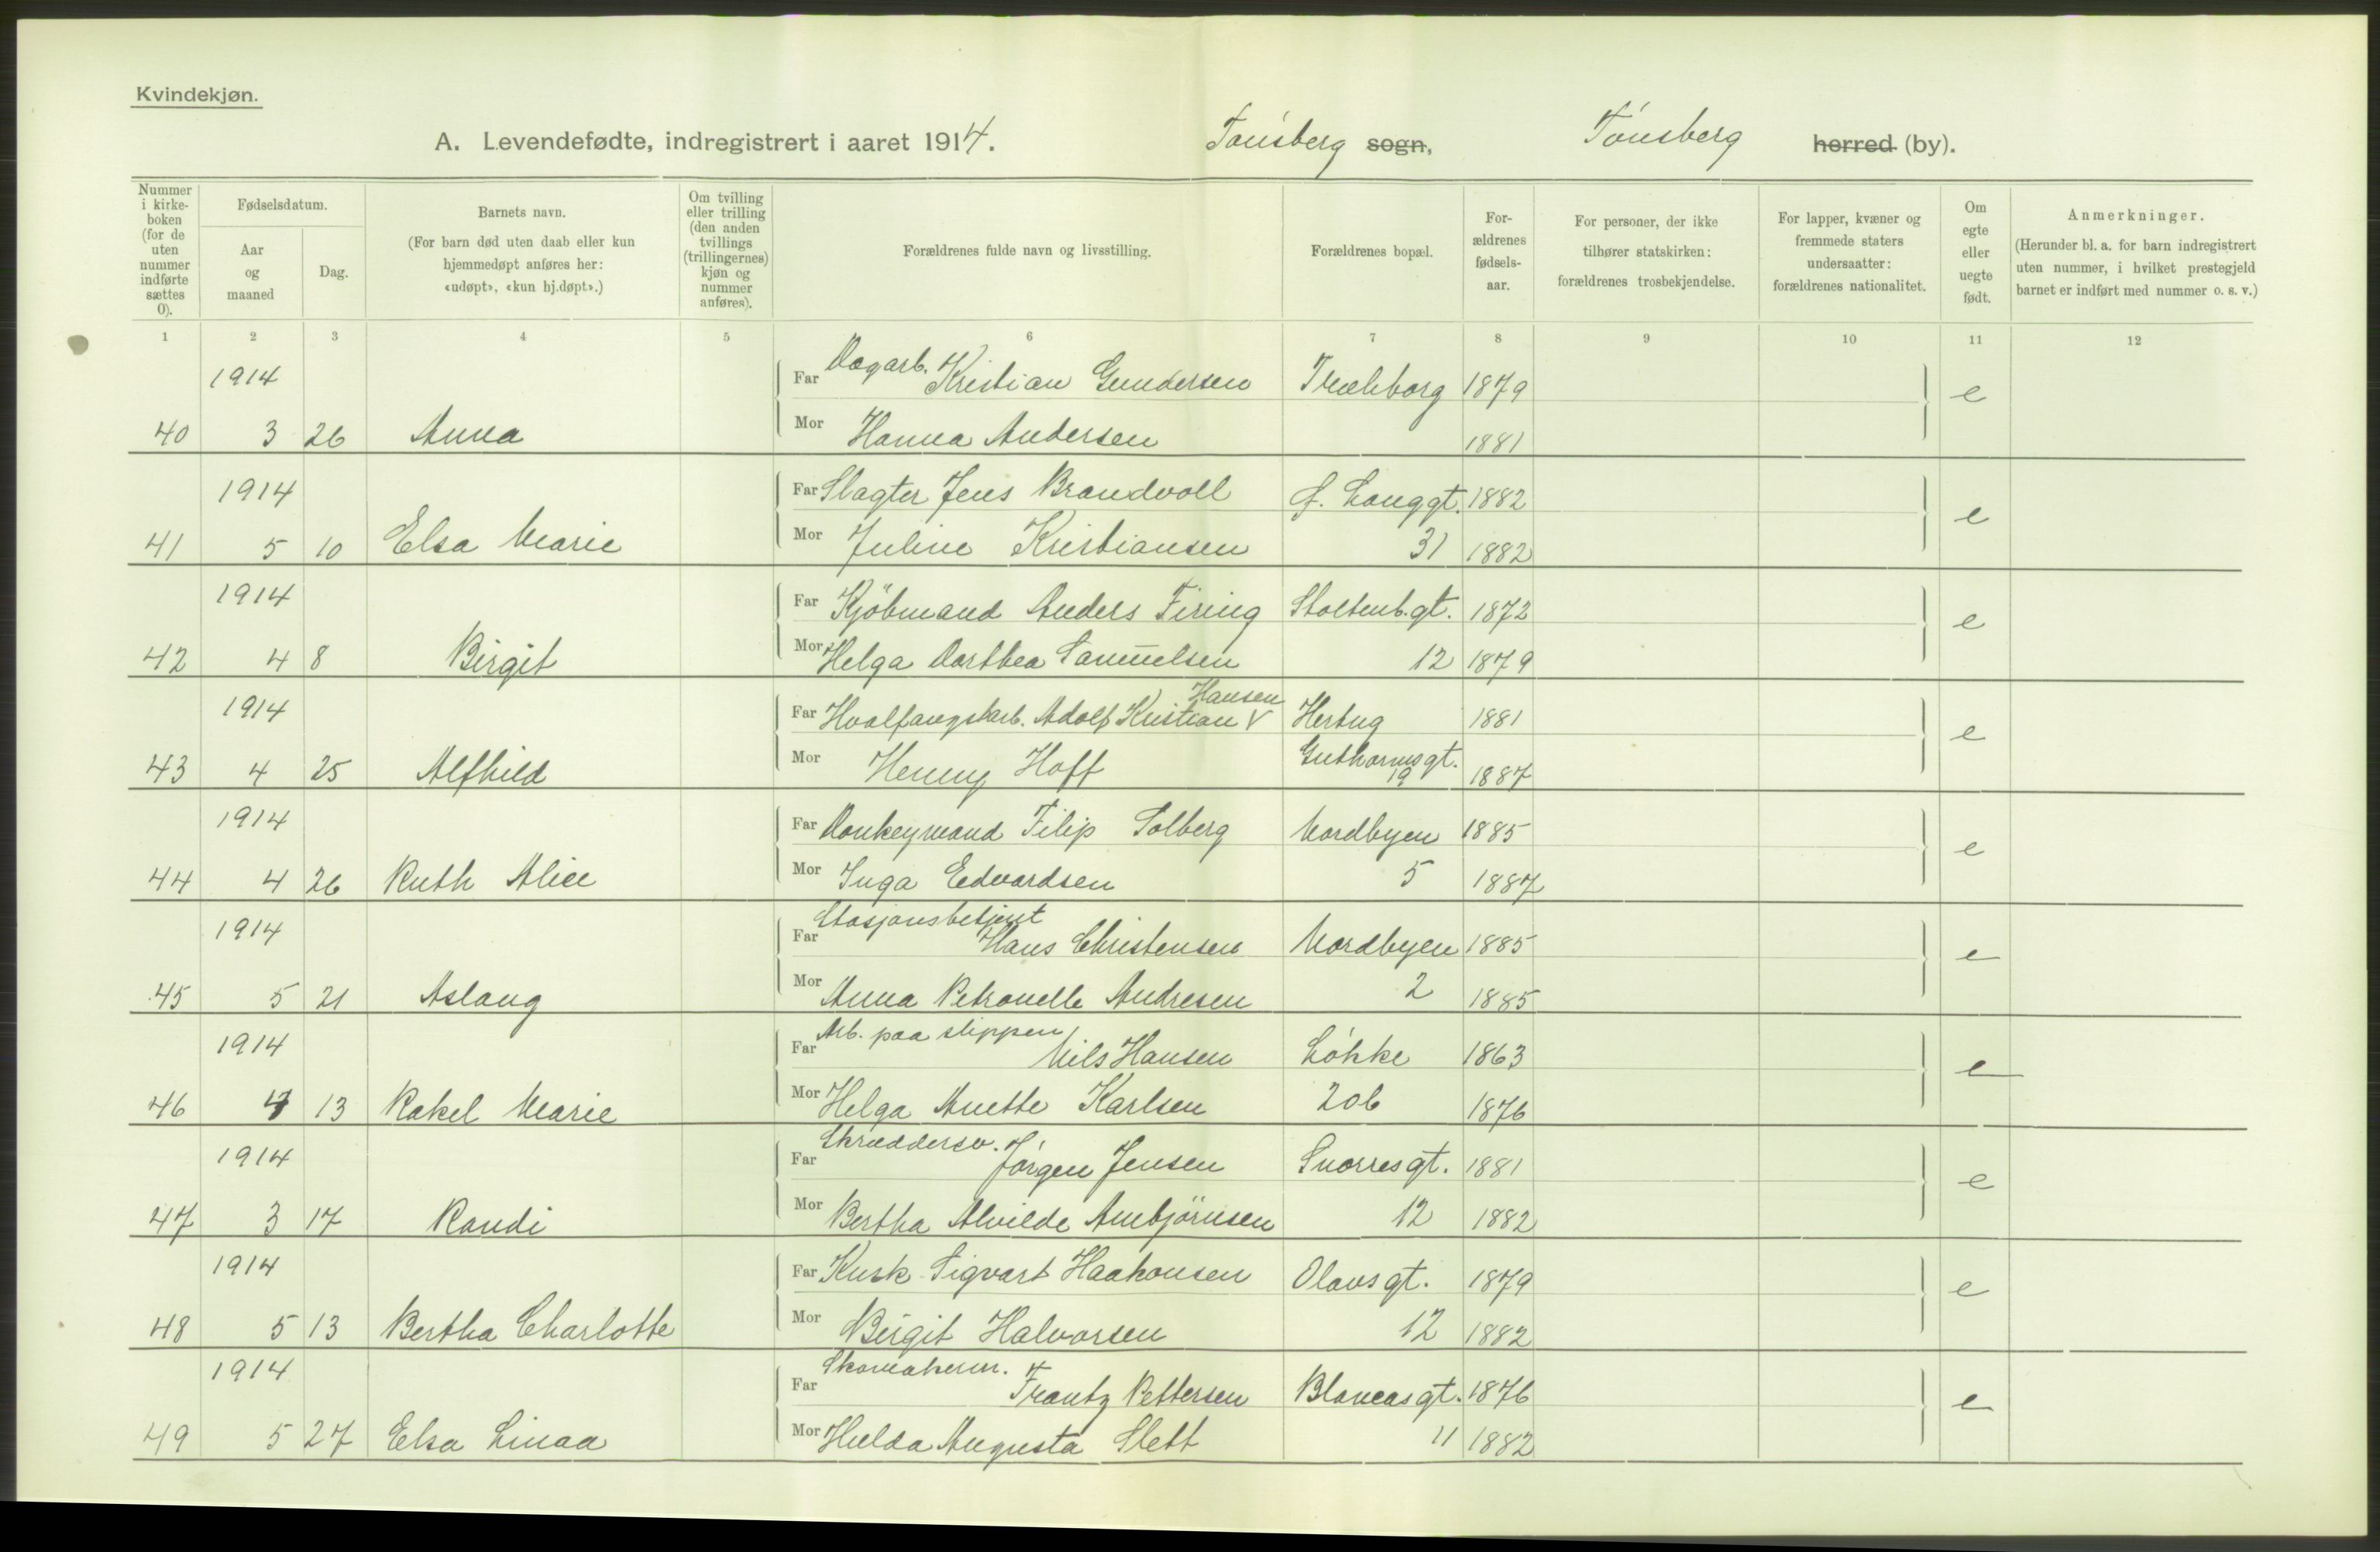 Kvindekjøn.
A. Levendefødte, indregistrert i aaret 1914. Tønsberg sogn, Tønsberg herred (by).
Nummer i kirke-boken (for de uten nummer indførte sættes 0).
Fødselsdatum.
Aar og maaned
Dag.
Barnets navn.
(For barn død uten daab eller kun hjemmedøpt anføres her: «udøpt», «kun hj.døpt».)
Om tvilling eller trilling (den anden tvillings (trillingernes) kjøn og nummer anføres).
Forældrenes fulde navn og livsstilling.
Forældrenes bopæl.
For-ældrenes fødsels-aar.
For personer, der ikke tilhører statskirken: forældrenes trosbekjendelse.
For lapper, kvæner og fremmede staters undersaatter: forældrenes nationalitet.
Om egte eller uegte født.
Anmerkninger.
(Herunder bl. a. for barn indregistrert uten nummer, i hvilket prestegjeld barnet er indført med nummer o. s. v.)
1 2 3 4 5 6 7 8 9 10 11 12
1914 Far Dagarb. Kristian Gundersen Træleborg 1879 e
40 3 26 Anna Mor Hanna Andersen 1881
1914 Far Slagter Jens Brandvoll Langgt. 1882 e
41 5 10 Elsa Marie Mor Juline Kristiansen 31 1882
1914 Far Kjöbmand Anders Firing Stoltenb.gt. 1872 e
42 4 8 Birgit Mor Helga Dorthea Samuelsen 12 1879
1914 Far Hvalfangstarb. Adolf Kristian Hansen Hertug 1881 e
43 4 25 Alfhild Mor Henny Hoff Guthormsgt. 19 1887
1914 Far Donkeymand Filip Solberg Nordbyen 1885 e
44 4 26 Ruth Alice Mor Inga Edvardsen 5 1887
1914 Far Stasjonsbetjent Hans Christensen Nordbyen 1885 e
45 5 21 Aslaug Mor Anna Petronelle Andresen 2 1885
1914 Far Arb. paa slippen Nils Hansen Løkke 1863 e
46 4 13 Rakel Marie Mor Helga Anette Karlsen 20b 1876
1914 Far Skræddersv. Jørgen Jensen Snorresgt. 1881 e
47 3 17 Randi Mor Bertha Alvilde Ambjörnsen 12 1882
1914 Far Kusk Sigvart Haakonsen Olavsgt. 1879 e
48 5 13 Bertha Charlotte Mor Birgit Halvorsen 12 1882
1914 Far Skomakerm. Frantz Pettersen Blancasgt. 1876 e
49 5 27 Elsa Linaa Mor Hulda Augusta Slett 11 1882